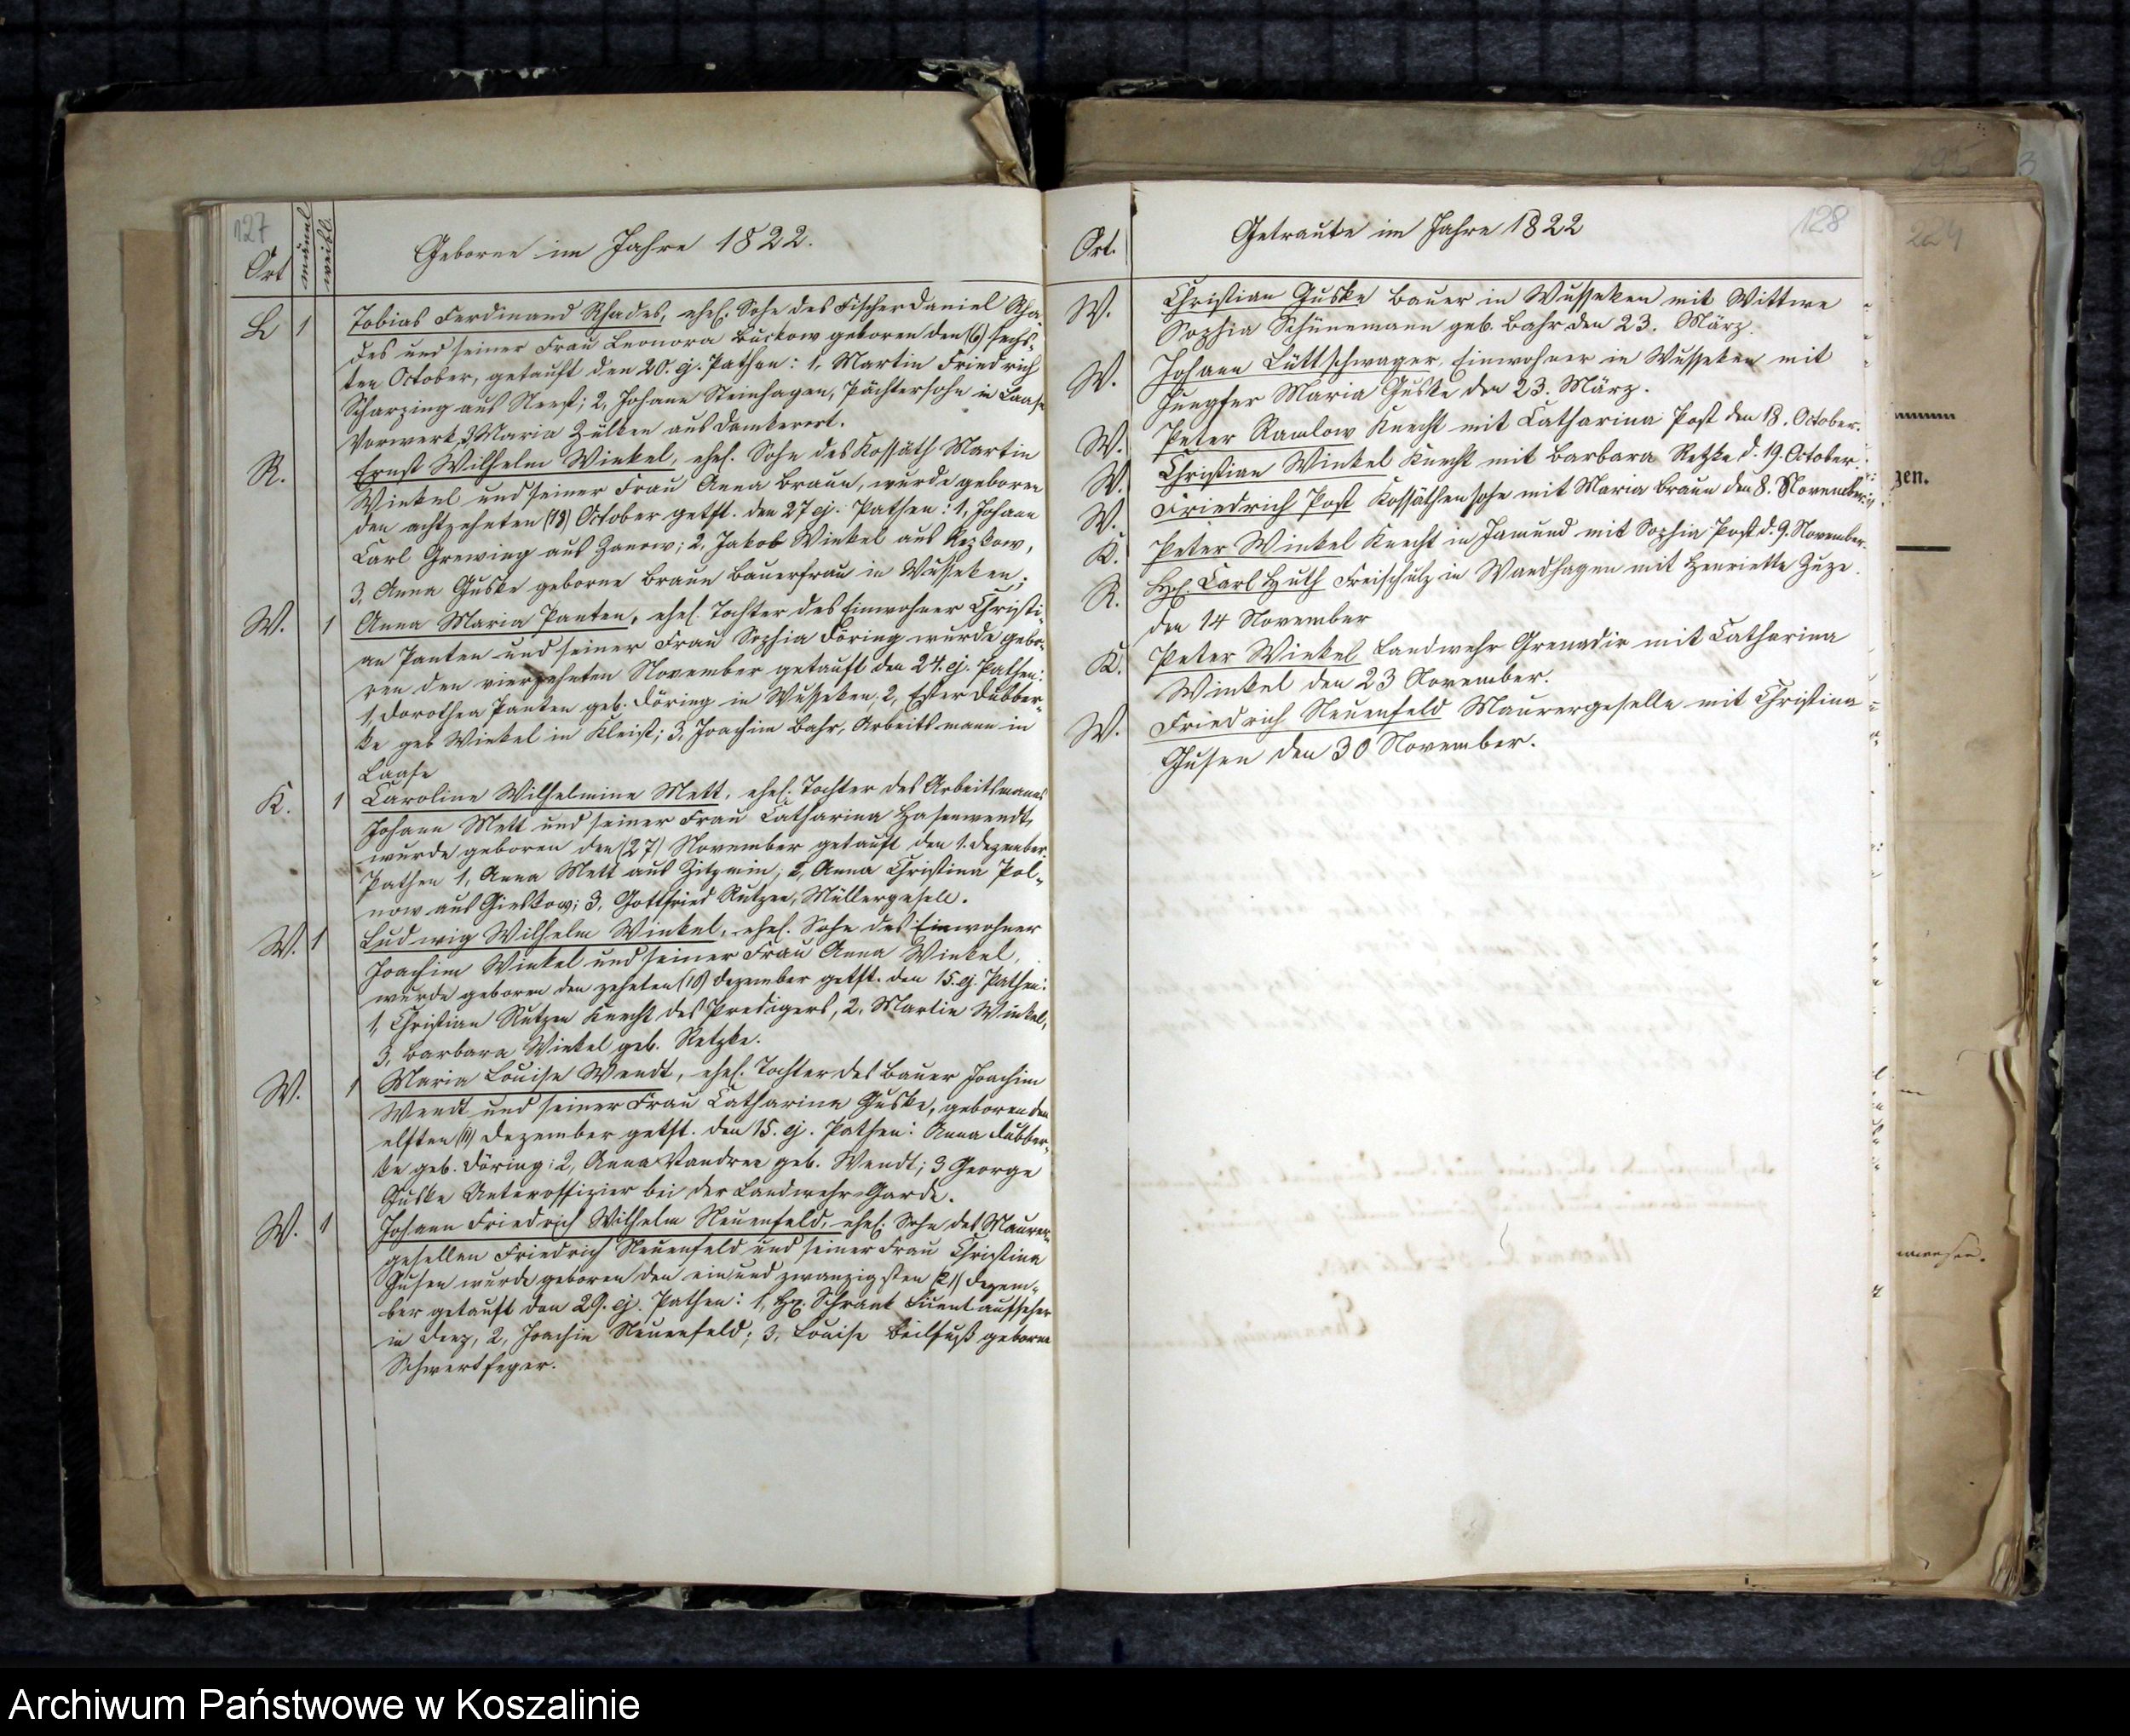 127
Ort
männl
weibl.
Geborne im Jahre 1822.
L 1 Tobias Ferdinand Rhades, ehel. Sohn des Fischer Daniel Rha-
des und seiner Frau Leonora Buckow geboren den (6) sechs-
ten October, getauft den 20. ej. Pathen: 1, Martin Friedrich
Scharping aus Neest; 2, Johann Steinhagen, Pächtersohn in Laase
Vorwerk 3, Maria Zülken aus Damkerort.
R. Ernst Wilhelm Winkel, ehel. Sohn des Kossäth Martin
Winkel und seiner Frau Anna Braun, wurde geboren
den achtzehnten (18) October getft. den 27 ej. Pathen: 1, Johann
Carl Grewing aus Zanow; 2, Jakob Winkel aus Repkow,
3, Anna Guske geborne Braun Bauerfrau in Wusseken;
W. 1 Anna Maria Panten, ehel. Tochter des Einwohner Christi-
an Panten und seiner Frau Sophia Döring wurde gebo-
ren den vierzehnten November getauft den 24. ej. Pathen:
1, Dorothea Panten geb. Döring in Wusseken; 2, Ester Dubber-
ke geb Winkel in Kleist; 3, Joachim Bahr, Arbeitsmann in
Laase
K. 1 Caroline Wilhelmine Mett, ehel. Tochter des Arbeitsmanns
Johann Mett und seiner Frau Catharina Hasenwendt,
wurde geboren den (27) November getauft den 1. Dezember.
Pathen 1, Anna Mett aus Zitzmin; 2, Anna Christina Pol-
now aus Gieskow; 3, Gottfried Rutzen, Müllergesell.
W. 1 Ludwig Wilhelm Winkel, ehel. Sohn des Einwohner
Joachim Winkel und seiner Frau Anna Winkel,
wurde geboren den zehnten (10) Dezember getft. den 15. ej. Pathen:
1, Christian Rutzen Knecht des Predigers, 2, Martin Winkel,
3, Barbara Winkel geb. Retzke.
W. 1 Maria Louise Wendt, ehel. Tochter des Bauer Joachim
Wendt und seiner Frau Catharina Guske, geboren den
elften (11) Dezember getft. den 15. ej. Pathen: Anna Dubber-
ke geb. Döring; 2, Anna Vandree geb. Wendt; 3 George
Guske Unteroffizier bei der Landwehr-Garde.
W. 1 Johann Friedrich Wilhelm Neuenfeld, ehel. Sohn des Maurer-
gesellen Friedrich Neuenfeld und seiner Frau Christina
Gusen wurde geboren den ein und zwanzigsten (21) Dezem-
ber getauft den 29. ej. Pathen: 1, Hr. Schrank aufseher
in Deep, 2, Joachim Neuenfeld; 3, Louise Beilfuß geborne
Schwertfeger.
128
Ort.
Getraute im Jahre 1822
W. Christian Guske Bauer in Wusseken mit Wittwe
Sophia Schünemann geb. Bahr den 23. März.
W. Johann Lüttschwager, Einwohner in Wusseken mit
Jungfer Maria Guske den 23. März.
W. Peter Ramlow Knecht mit Catharina Post den 18. October.
W. Christian Winkel Knecht mit Barbara Retzke d. 19. October.
W. Friedrich Post Kossäthensohn mit Maria Braun den 8. November.
K. Peter Winkel Knecht in Jamund mit Sophia Post d. 9. November.
R. Hr. Carl Huth Freischulz in Wandhagen mit Henriette Zuze
den 14 November
K. Peter Winkel Landwehr Grenadir mit Catharina
Winkel den 23 November.
W. Friedrich Neuenfeld Maurergeselle mit Christina
Gusen den 30 November.
224
gen.
Archiwum Państwowe w Koszalinie